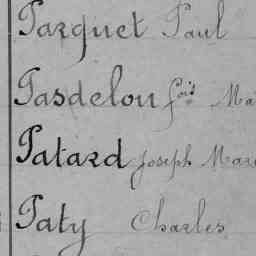 Parquet Paul
Pasdelou fois Ma
Patard Joseph Mar
Paty Charles